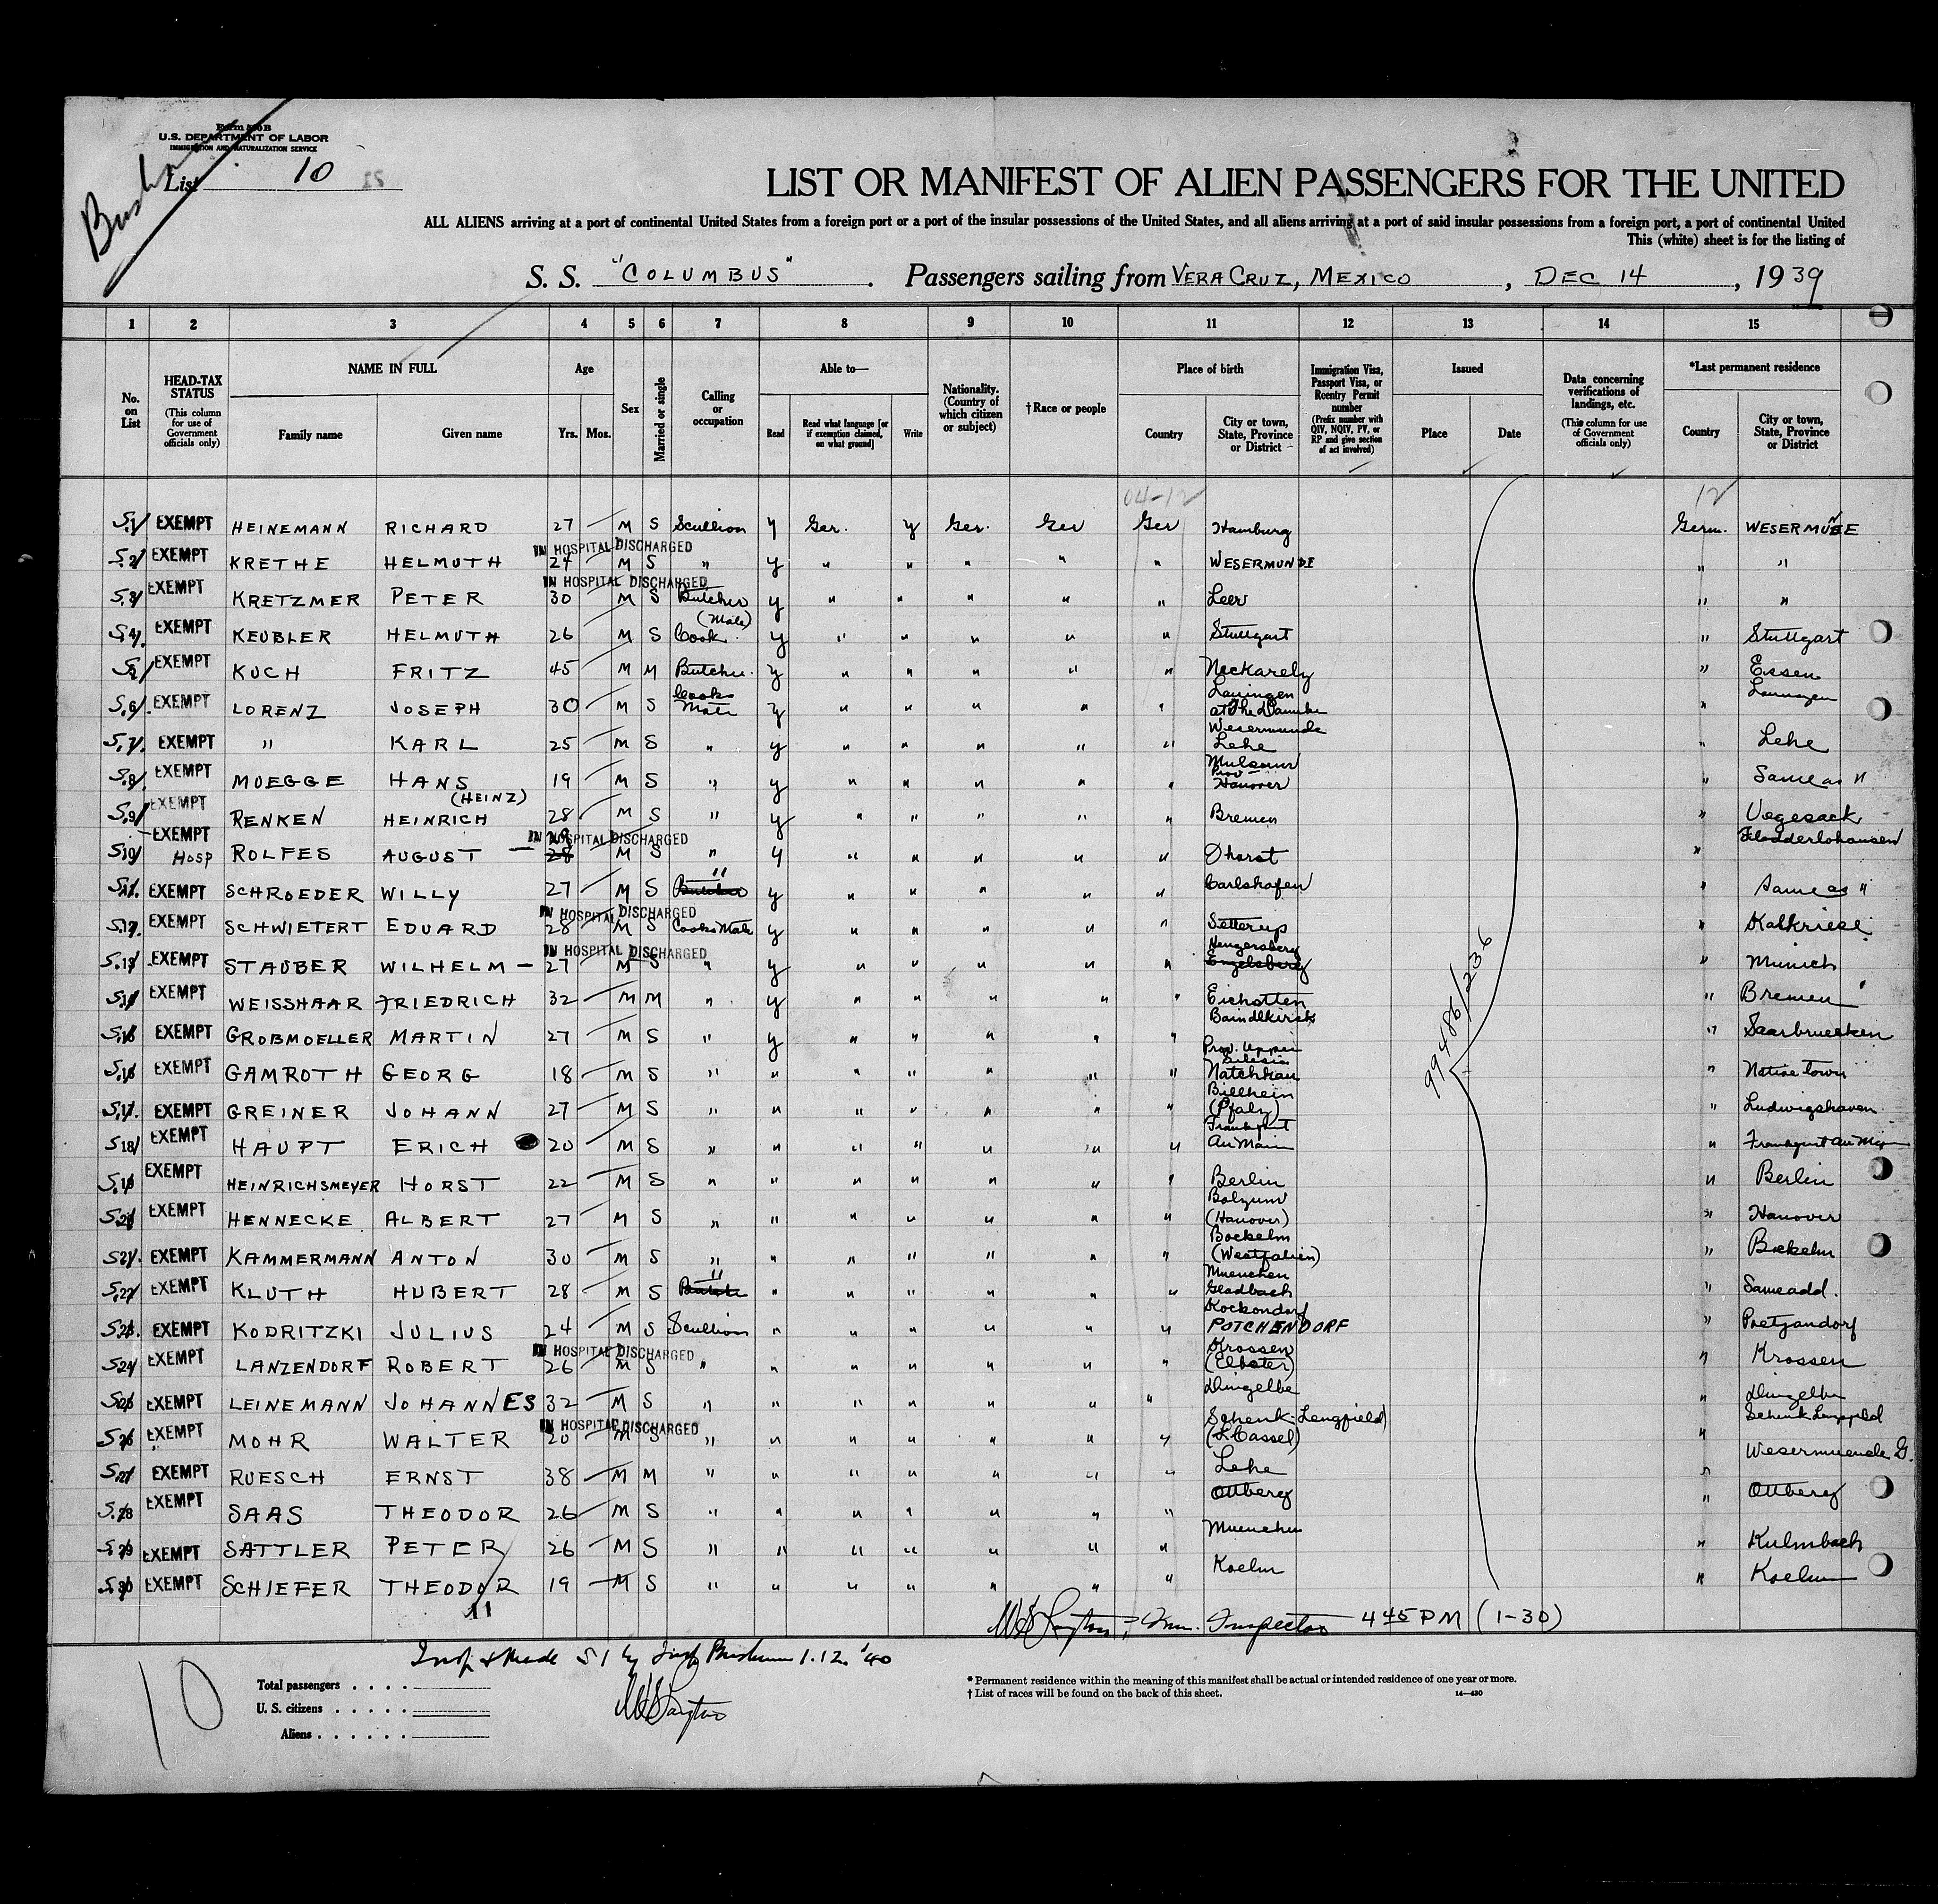 Form 500 B
U.S. DEPARTMENT OF LABOR
IMMIGRATION AND NATURALIZATION SERVICE
List 10
LIST OR MANIFEST OF ALIEN PASSENGERS FOR THE UNITED
ALL ALIENS arriving at a port of continental United States from a foreign port or a port of the insular possessions of the United States, and all aliens arriving at a port of said insular possessions from a foreign port, a port of continental United
This (white) sheet is for the listing of
S. S. "COLUMBUS". Passengers sailing from VERA CRUZ, MEXICO, DEC 14, 1939
1 2 3 4 5 6 7 8 9 10 11 12 13 14 15
No. on List
HEAD-TAX STATUS (This column for use of Government officials only)
NAME IN FULL Family name Given name
Age Yrs. Mos.
Sex
Married or single
Calling or occupation
Able to— Read Read what language [or if exemption claimed, on what ground] Write
Nationality. (Country of which citizen or subject)
†Race or people
Place of birth Country City or town, State, Province or District
Immigration Visa, Passport Visa, or Reentry Permit number (Prefix number with QIV, NQIV, PV, or RP and give section of act involved)
Issued Place Date
Data concerning verifications of landings, etc. (This column for use of Government officials only)
*Last permanent residence Country City or town, State, Province or District
04-12 12
S.1 EXEMPT HEINEMANN RICHARD 27 M S Scullion y Ger. y Ger. Ger Ger Hamburg Germ. WESERMUNDE
IN HOSPITAL DISCHARGED
S.2 EXEMPT KRETHE HELMUTH 24 M S " y " " " " " WESERMUNDE " "
IN HOSPITAL DISCHARGED
S.3 EXEMPT KRETZMER PETER 30 M S Butcher y " " " " " Leer " "
S.4 EXEMPT KEUBLER HELMUTH 26 M S Cook (Mate) y " " " " " Stuttgart " Stuttgart
S.5 EXEMPT KUCH FRITZ 45 M M Butcher y " " " " " Neckarelz " Essen
S.6 EXEMPT LORENZ JOSEPH 30 M S Cooks Mate y " " " " " Lauingen at the Danube "
S.7 EXEMPT " KARL 25 M S " y " " " " " Wesermunde Lehe " Lehe
S.8 EXEMPT MUEGGE HANS 19 M S " y " " " " " Mulsum Prov Hanover " Same as "
S.9 EXEMPT RENKEN HEINRICH (HEINZ) 28 M S " y " " " " " Bremen " Vegesack
IN HOSPITAL DISCHARGED
S.10 EXEMPT HOSP ROLFES AUGUST 28 M S " y " " " " " Dhorst " Fladderlohausen
S.11 EXEMPT SCHROEDER WILLY 27 M S " y " " " " " Carlshafen " Same as "
IN HOSPITAL DISCHARGED
S.12 EXEMPT SCHWIETERT EDUARD 28 M S Cooks Mate y " " " " " Setterup " Kalkriese
IN HOSPITAL DISCHARGED
S.13 EXEMPT STAUBER WILHELM 27 M S " y " " " " " Hengersberg Engelsberg " Munich
S.14 EXEMPT WEISSHAAR FRIEDRICH 32 M M " y " " " " " Eichstten " Bremen
S.15 EXEMPT GROBMOELLER MARTIN 27 M S " y " " " " " Baindlkirch " Saarbruecken
S.16 EXEMPT GAMROTH GEORG 18 M S " " " " " " " Prov. Upper Silesia Natchkau " Native town
S.17 EXEMPT GREINER JOHANN 27 M S " " " " " " " Billhein (Pfalz) " Ludwigshaven
S.18 EXEMPT HAUPT ERICH 20 M S " " " " " " " Frankfurt Au Main " Frankfurt au Main
S.19 EXEMPT HEINRICHSMEYER HORST 22 M S " " " " " " " Berlin " Berlin
S.20 EXEMPT HENNECKE ALBERT 27 M S " " " " " " " Bolzum (Hanover) " Hanover
S.21 EXEMPT KAMMERMANN ANTON 30 M S " " " " " " " Bockelm (Westfalien) " Bockelm
S.22 EXEMPT KLUTH HUBERT 28 M S " " " " " " " Muenchen Gladbach " Same add.
S.23 EXEMPT KODRITZKI JULIUS 24 M S Scullion " " " " " " Kockondorf POTCHENDORF " Poetzandorf
IN HOSPITAL DISCHARGED
S.24 EXEMPT LANZENDORF ROBERT 26 M S " " " " " " " Krossen (Elbster) " Krossen
S.25 EXEMPT LEINEMANN JOHANNES 32 M S " " " " " " " Dingelbe " Dingelbe
IN HOSPITAL DISCHARGED
S.26 EXEMPT MOHR WALTER 20 M S " " " " " " " Schenk-Lengfield (Cassel) " Schenk Lengsfeld
S.27 EXEMPT RUESCH ERNST 38 M M " " " " " " " Lehe " Wesermuende G.
S.28 EXEMPT SAAS THEODOR 26 M S " " " " " " " Ottberg " Ottberg
S.29 EXEMPT SATTLER PETER 26 M S " " " " " " " Muenchen " Kulmbach
S.30 EXEMPT SCHIEFER THEODOR 19 M S " " " " " " " Koeln " Koeln
99486/236
11
Imm. Inspector 4 45 PM (1-30)
1.12.'40
10
Total passengers
U. S. citizens
Aliens
* Permanent residence within the meaning of this manifest shall be actual or intended residence of one year or more.
† List of races will be found on the back of this sheet.
14—430